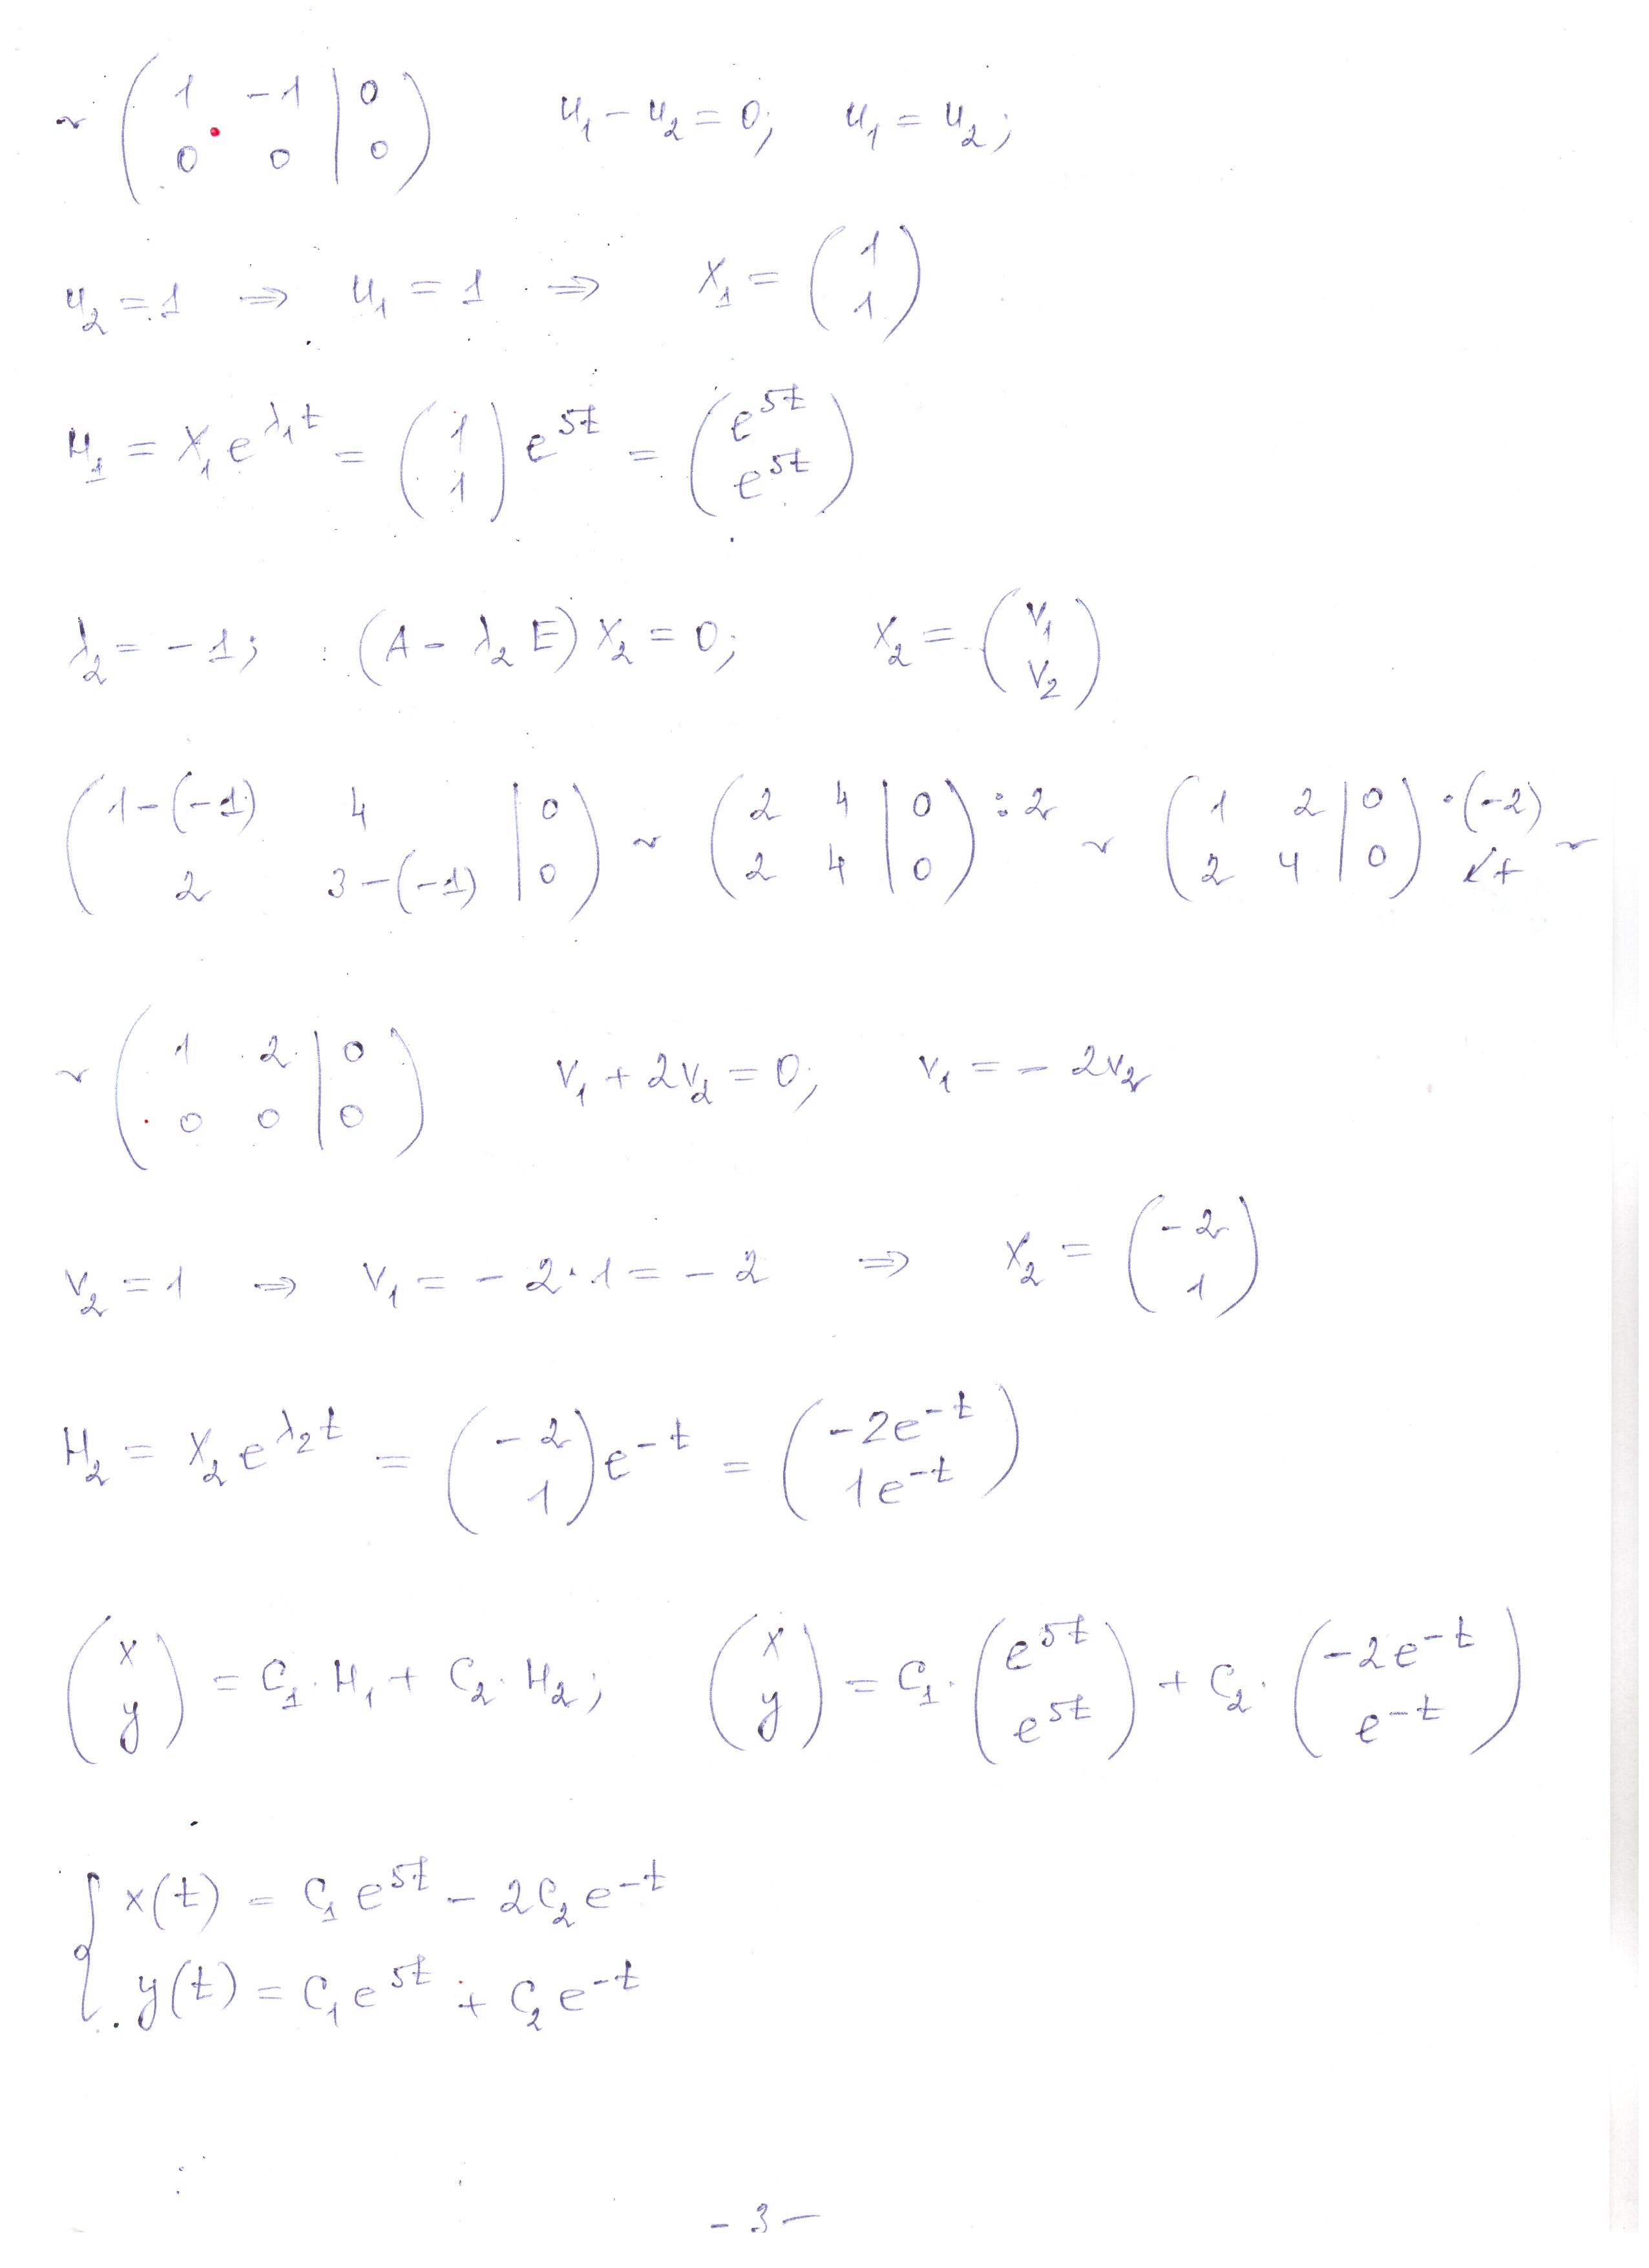 ~ ( 1 -1 | 0
0 0 | 0 ) u₁ - u₂ = 0; u₁ = u₂;
u₂ = 1 ⇒ u₁ = 1 ⇒ X₁ = ( 1
1 )
H₁ = X₁ e^{λ₁t} = ( 1
1 ) e^{5t} = ( e^{5t}
e^{5t} )
λ₂ = -1; (A - λ₂ E) X₂ = 0; X₂ = ( v₁
v₂ )
( 1-(-1) 4 | 0
2 3-(-1) | 0 ) ~ ( 2 4 | 0
2 4 | 0 ) :2 ~ ( 1 2 | 0
2 4 | 0 ) ·(-2) ↙+ ~
~ ( 1 2 | 0
0 0 | 0 ) v₁ + 2v₂ = 0; v₁ = - 2v₂
v₂ = 1 ⇒ v₁ = - 2·1 = - 2 ⇒ X₂ = ( -2
1 )
H₂ = X₂ e^{λ₂t} = ( -2
1 ) e^{-t} = ( -2e^{-t}
1e^{-t} )
( x
y ) = C₁· H₁ + C₂· H₂; ( x
y ) = C₁· ( e^{5t}
e^{5t} ) + C₂· ( -2e^{-t}
e^{-t} )
{ x(t) = C₁ e^{5t} - 2C₂ e^{-t}
y(t) = C₁ e^{5t} + C₂ e^{-t}
- 3 -